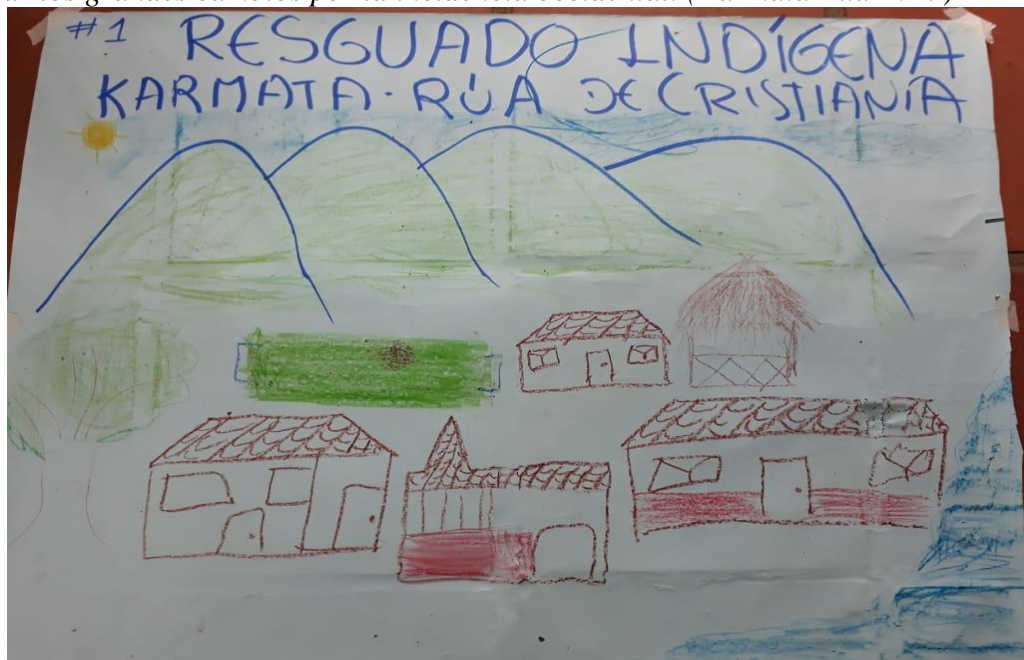 #1 RESGUADO INDÍGENA
KARMATA·RÚA DE CRISTIANÍA